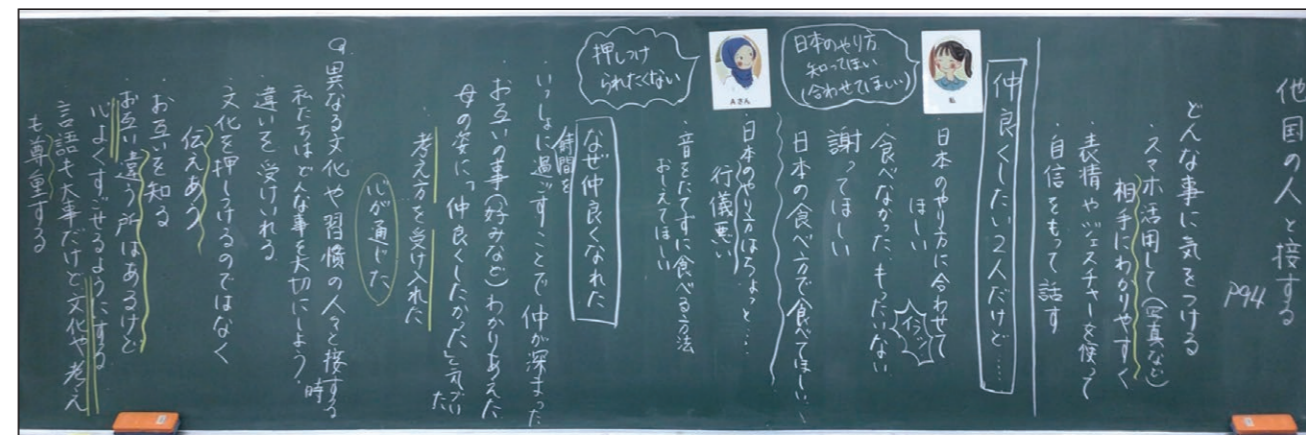 他国の人と接する
P94
どんな事に気をつける
・スマホ活用して(写真など)
相手にわかりやすく
・表情やジェスチャーを使って
・自信をもって話す
仲良くしたい2人だけど……
私
日本のやり方
知ってほしい
(合わせてほしい)
・日本のやり方に合わせて
ほしい
・食べなかった、もったいない
イラッ
・謝ってほしい
・日本の食べ方で食べてほしい、
Aさん
押しつけ
られたくない
・日本のやり方はちょっと……
行儀悪い
・音をたてずに食べる方法
おしえてほしい
なぜ仲良くなれた
・いっしょに過ごすことで仲が深まった
時間を
・お互いの事(好みなど)わかりあえた
・母の姿に「仲良くしたかった」と気づいた
・考え方を受け入れた
心が通じた
Q.異なる文化や習慣の人々と接する時
私たちはどんな事を大切にしよう。
・違いを受けいれる
・文化を押しつけるのではなく
伝えあう
・お互いを知る
・お互い違う所はあるけど
心よくすごせるようにする
・言語も大事だけど文化や考え
も尊重する